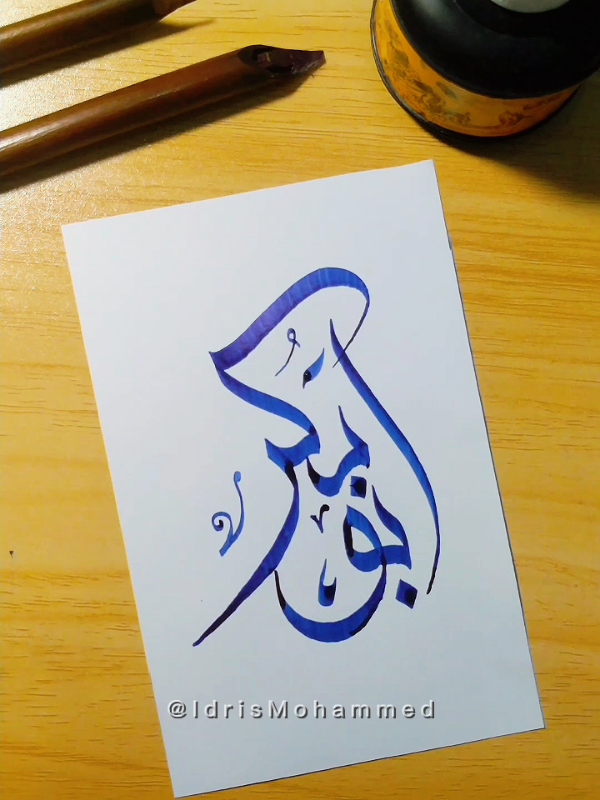 أبو بكر
@IdrisMohammed